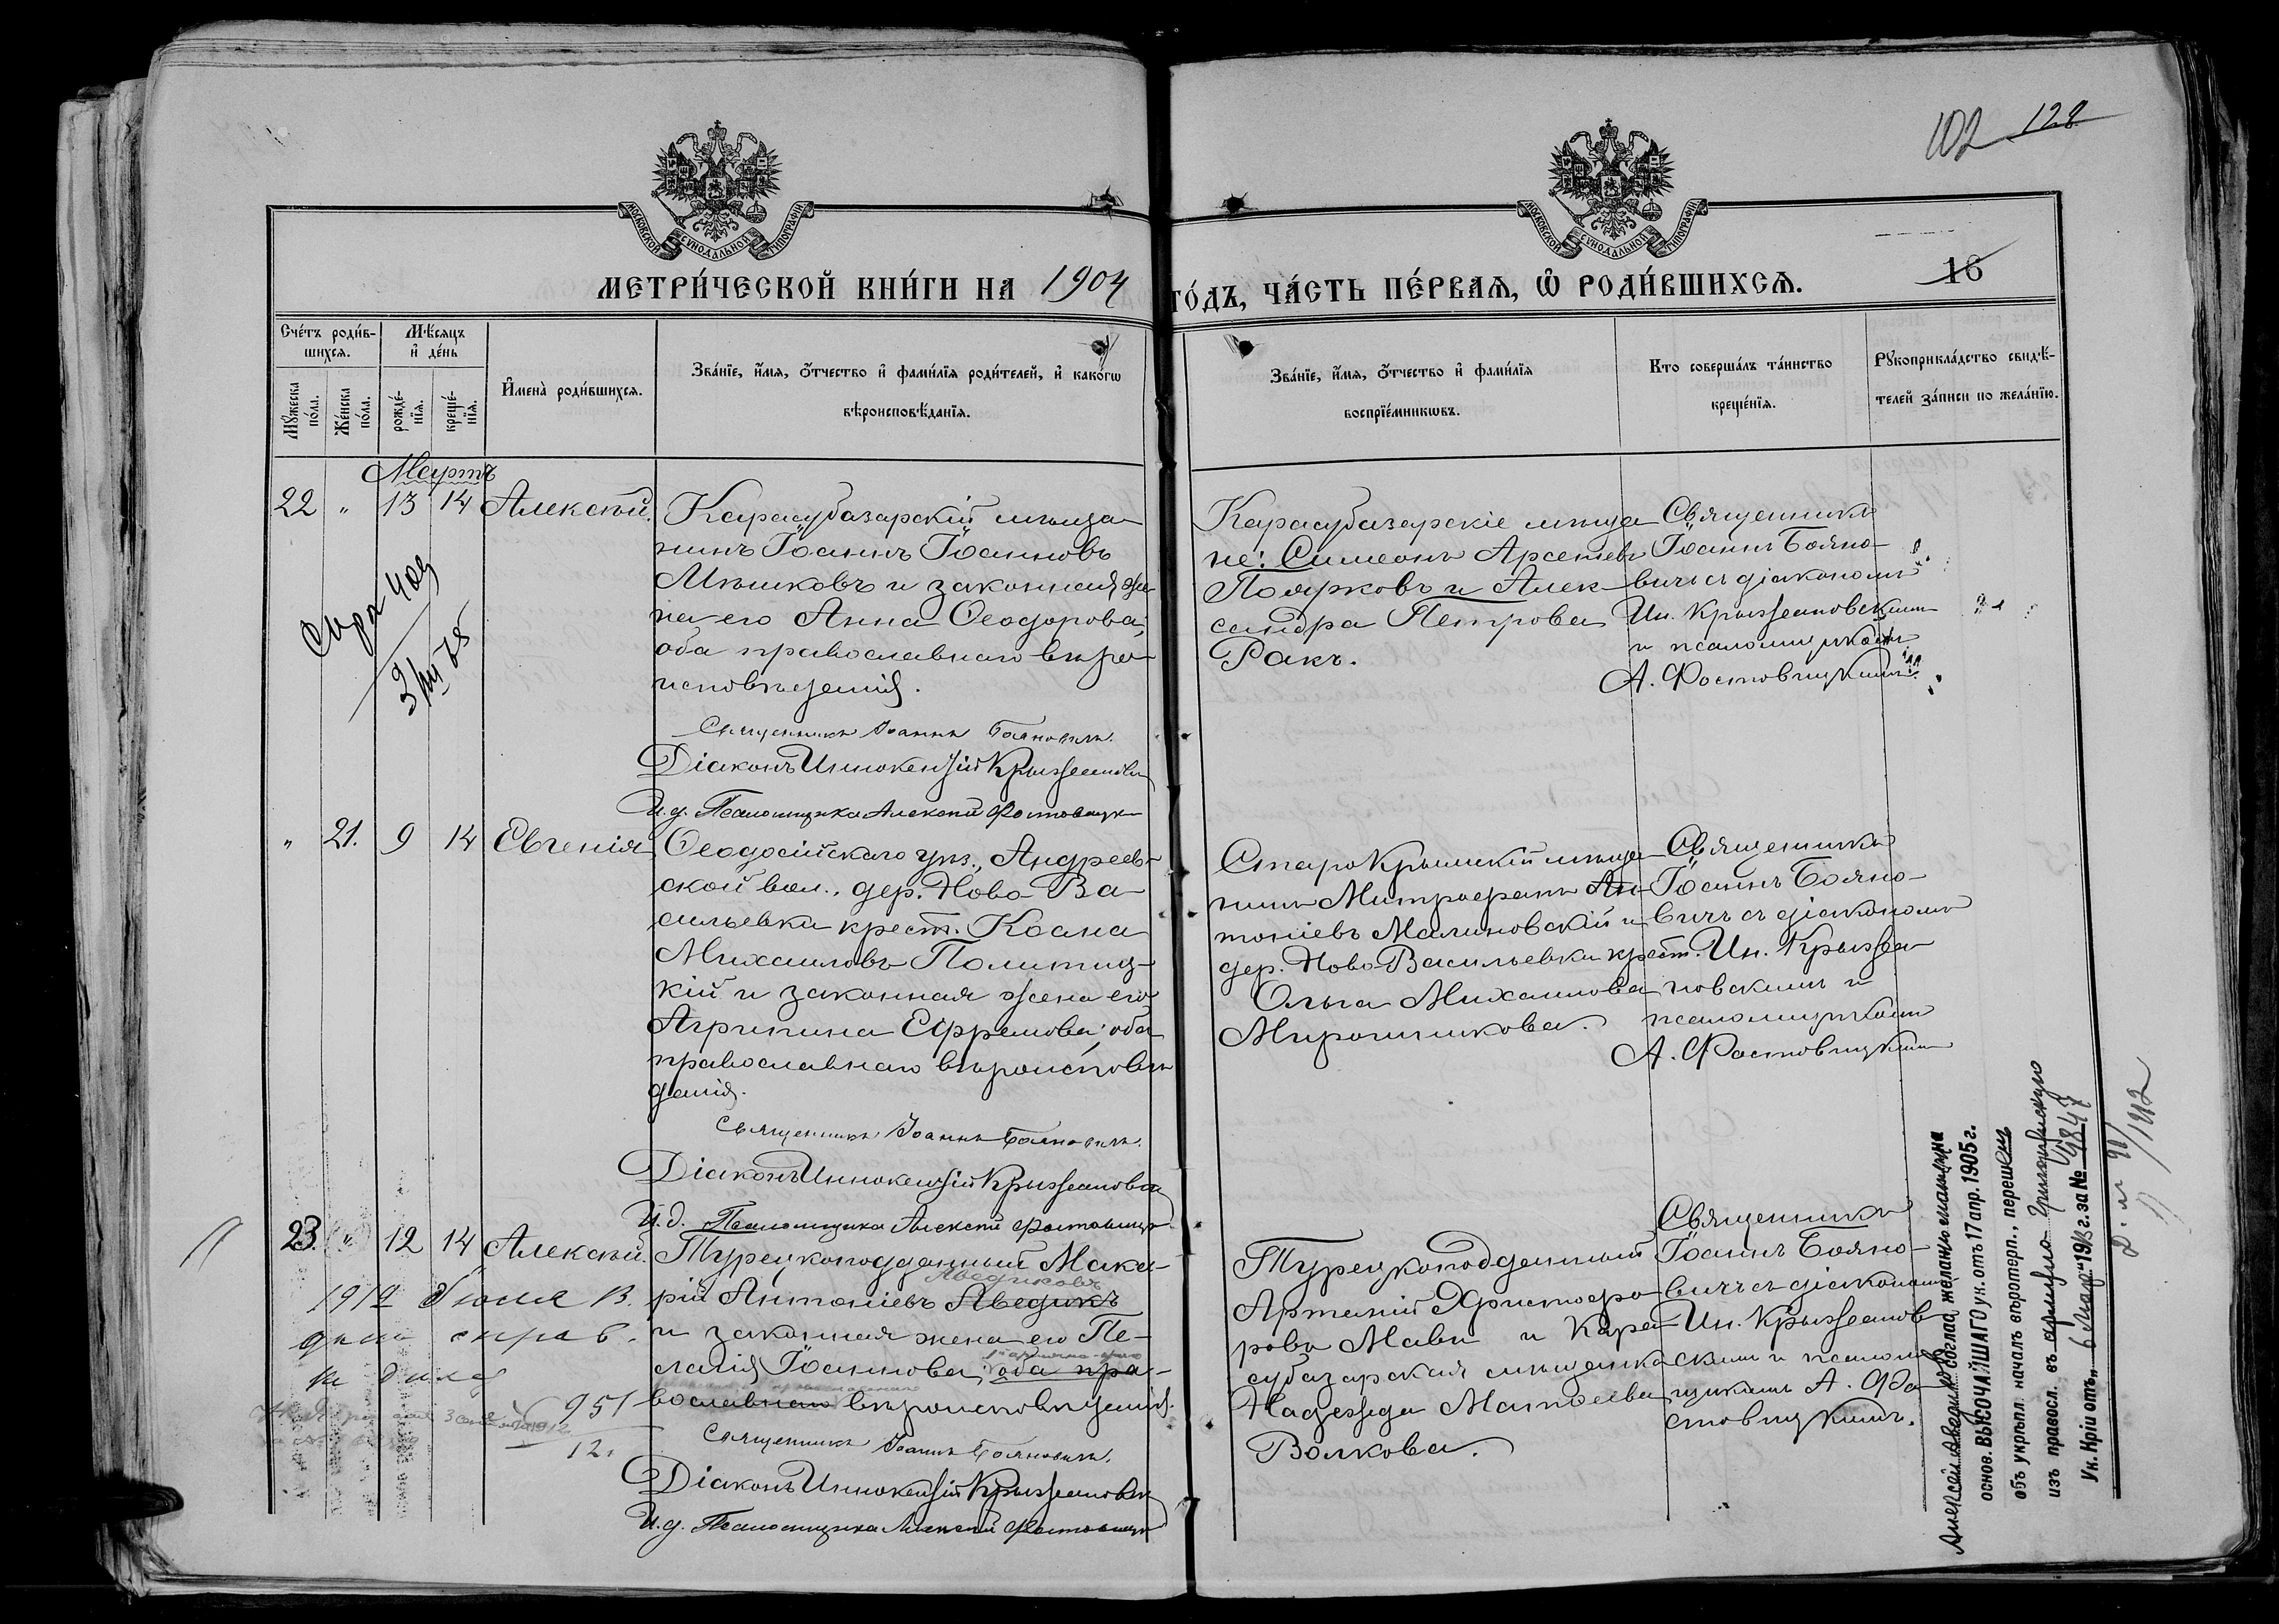 102 128
МОСКОВСКОЙ СѴНОДАЛЬНОЙ ТИПОГРАФІИ
МОСКОВСКОЙ СѴНОДАЛЬНОЙ ТИПОГРАФІИ
МЕТРИ́ЧЕСКОЙ КНИ́ГИ НА 1904
ГО́ДЪ, ЧА́СТЬ ПЕ́РВАѦ, Ѡ҆ РОДИ́ВШИХСѦ.
16
Сче́тъ роди́в-
шихсѧ.
Мꙋ́жеска по́ла.
Же́нска по́ла.
Мѣ́сѧцъ
и҆ де́нь
рожде́-
нїѧ.
креще́-
нїѧ.
И҆мена̀ роди́вшихсѧ.
Зва́нїе, и҆́мѧ, ѻ҆́тчество и҆ фами́лїѧ роди́телей, и҆ како́гѡ
вѣроисповѣ́данїѧ.
Зва́нїе, и҆́мѧ, ѻ҆́тчество и҆ фами́лїѧ
воспрїе́мникѡвъ.
Кто соверша́лъ та́инство
креще́нїѧ.
Рꙋкоприкла́дство свидѣ́-
телей за́писи по жела́нїю.
Мартъ
22 " 13 14 Алексѣй.
Карасубазарскій мѣща-
нинъ Іоаннъ Іоанновъ
Мѣшковъ и законная же-
на его Анна Ѳеодорова,
оба православнаго вѣро-
исповѣданія.
Священникъ Іоаннъ Бояновичъ.
Діаконъ Иннокентій Крыжановскій
И. д. Псаломщика Алексѣй Фастовицкій
Карасубазарскіе мѣща-
не: Симеонъ Арсеніевъ
Поярковъ и Алек-
сандра Петрова
Ракъ.
Священникъ
Іоаннъ Бояно-
вичъ съ діакономъ
Ин. Крыжановскимъ
и псаломщикомъ
А. Фастовицкимъ.
" 21. 9 14 Евгенія
Ѳеодосійскаго уѣз., Андреев-
ской вол., дер. Ново-Ва-
сильевка крест. Іоанъ
Михаиловъ Политиц-
кій и законная жена его
Агрипина Ефремова; оба
православнаго вѣроисповѣ-
данія.
Священникъ Іоаннъ Бояновичъ.
Діаконъ Иннокентій Крыжановскій
И. д. Псаломщика Алексѣй Фастовицкій
Старокрымскій мѣща-
нинъ Митрофанъ Ан-
тоніевъ Малиновскій и
дер. Ново-Васильевки крест.
Ольга Михаилова
Мирошникова.
Священникъ
Іоаннъ Бояно-
вичъ съ діакономъ
Ин. Крыжа-
новскимъ и
псаломщикомъ
А. Фастовицкимъ
23. " 12 14 Алексѣй.
Турецкоподданный Мака-
Аведиковъ
рій Антоніевъ Аведикъ
и законная жена его Пе-
лагія Іоаннова; оба пра-
вославнаго вѣроисповѣданія.
Священникъ Іоаннъ Бояновичъ.
Діаконъ Иннокентій Крыжановскій
И. д. Псаломщика Алексѣй Фастовицкій
1912 Іюля 13.
951
12.
Турецкоподданный
Артемій Христофо-
ровъ Мави и Кара-
субазарская мѣщанка
Надежда Матѳеева
Волкова.
Священникъ
Іоаннъ Бояно-
вичъ съ діакономъ
Ин. Крыжанов-
скимъ и псалом-
щикомъ А. Фа-
стовицкимъ.
Алексѣй Аведиковъ соглас. желанію
основ. ВЫСОЧАЙШАГО ук. отъ 17 апр. 1905 г.
объ укрѣпл. началъ вѣротерп., перешелъ
изъ правосл. въ армяно-григоріанскую
Ук. Кріи отъ „6 Мар." 1913 г. за № 9847